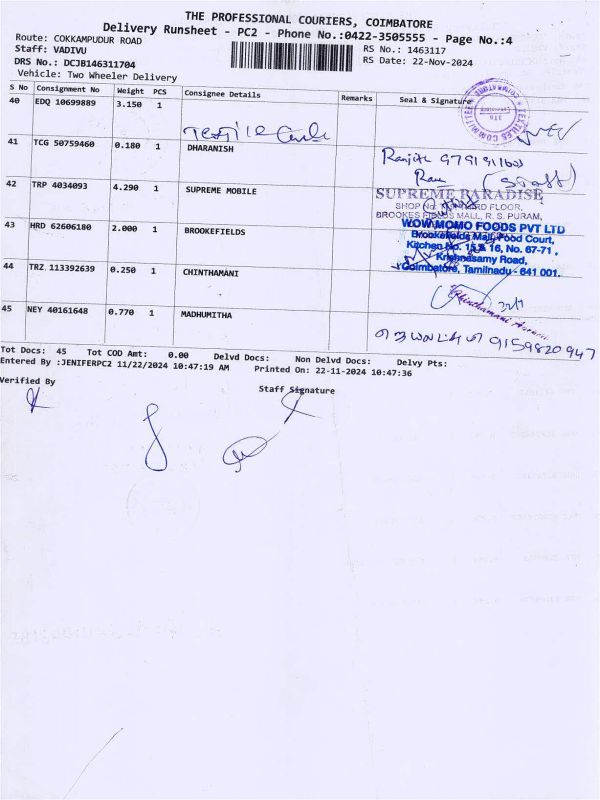 THE PROFESSIONAL COURIERS, COIMBATORE
Delivery Runsheet - PC2 - Phone No.:0422-3505555 - Page No.:4
Route: COKKAMPUDUR ROAD
Staff: VADIVU
RS No.: 1463117
DRS No.: DCJB146311704
RS Date: 22-Nov-2024
Vehicle: Two Wheeler Delivery
S No Consignment No Weight PCS Consignee Details Remarks Seal & Signature
40 EDQ 10699889 3.150 1
TEXTILES COMMITTEE
41 TCG 50759460 0.180 1 DHARANISH
Ranjith
(Staff)
42 TRP 4034093 4.290 1 SUPREME MOBILE
SUPREME PARADISE
SHOP No. THIRD FLOOR,
BROOKES FIELDS MALL, R. S. PURAM,
43 HRD 62606180 2.000 1 BROOKEFIELDS
WOW MOMO FOODS PVT LTD
Brookefields Mall, Food Court,
Kitchen No. 15 & 16, No. 67-71,
Krishnasamy Road,
Coimbatore, Tamilnadu - 641 001.
44 TRZ 113392639 0.250 1 CHINTHAMANI
45 NEY 40161648 0.770 1 MADHUMITHA
9159820947
Tot Docs: 45 Tot COD Amt: 0.00 Delvd Docs: Non Delvd Docs: Delvy Pts:
Entered By :JENIFERPC2 11/22/2024 10:47:19 AM Printed On: 22-11-2024 10:47:36
Verified By
Staff Signature